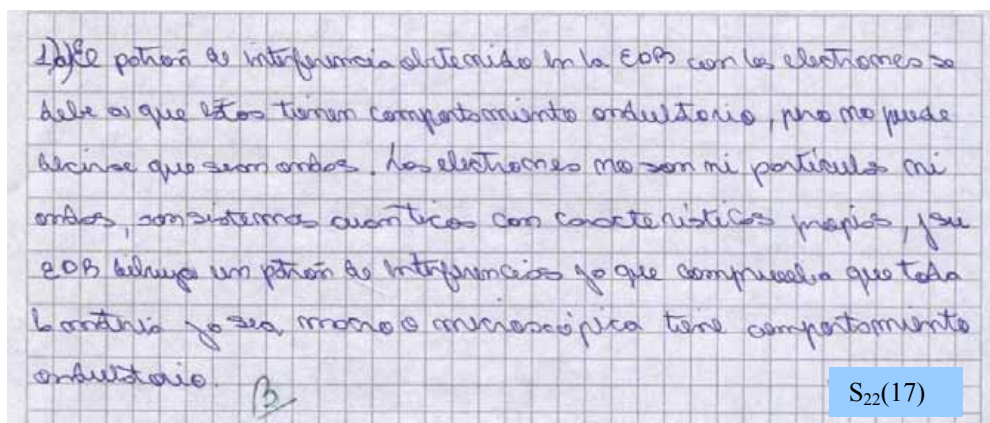 1)a) El patrón de interferencia obtenido en la EDB con los electrones se
debe a que estos tienen comportamiento ondulatorio, pero no puede
decirse que sean ondas. Los electrones no son ni partículas ni
ondas, son sistemas cuánticos con características propias, y su
EDB dibuja un patrón de interferencias ya que comprueba que toda
la materia ya sea macro o microscópica tiene comportamiento
ondulatorio.
B
S₂₂(17)